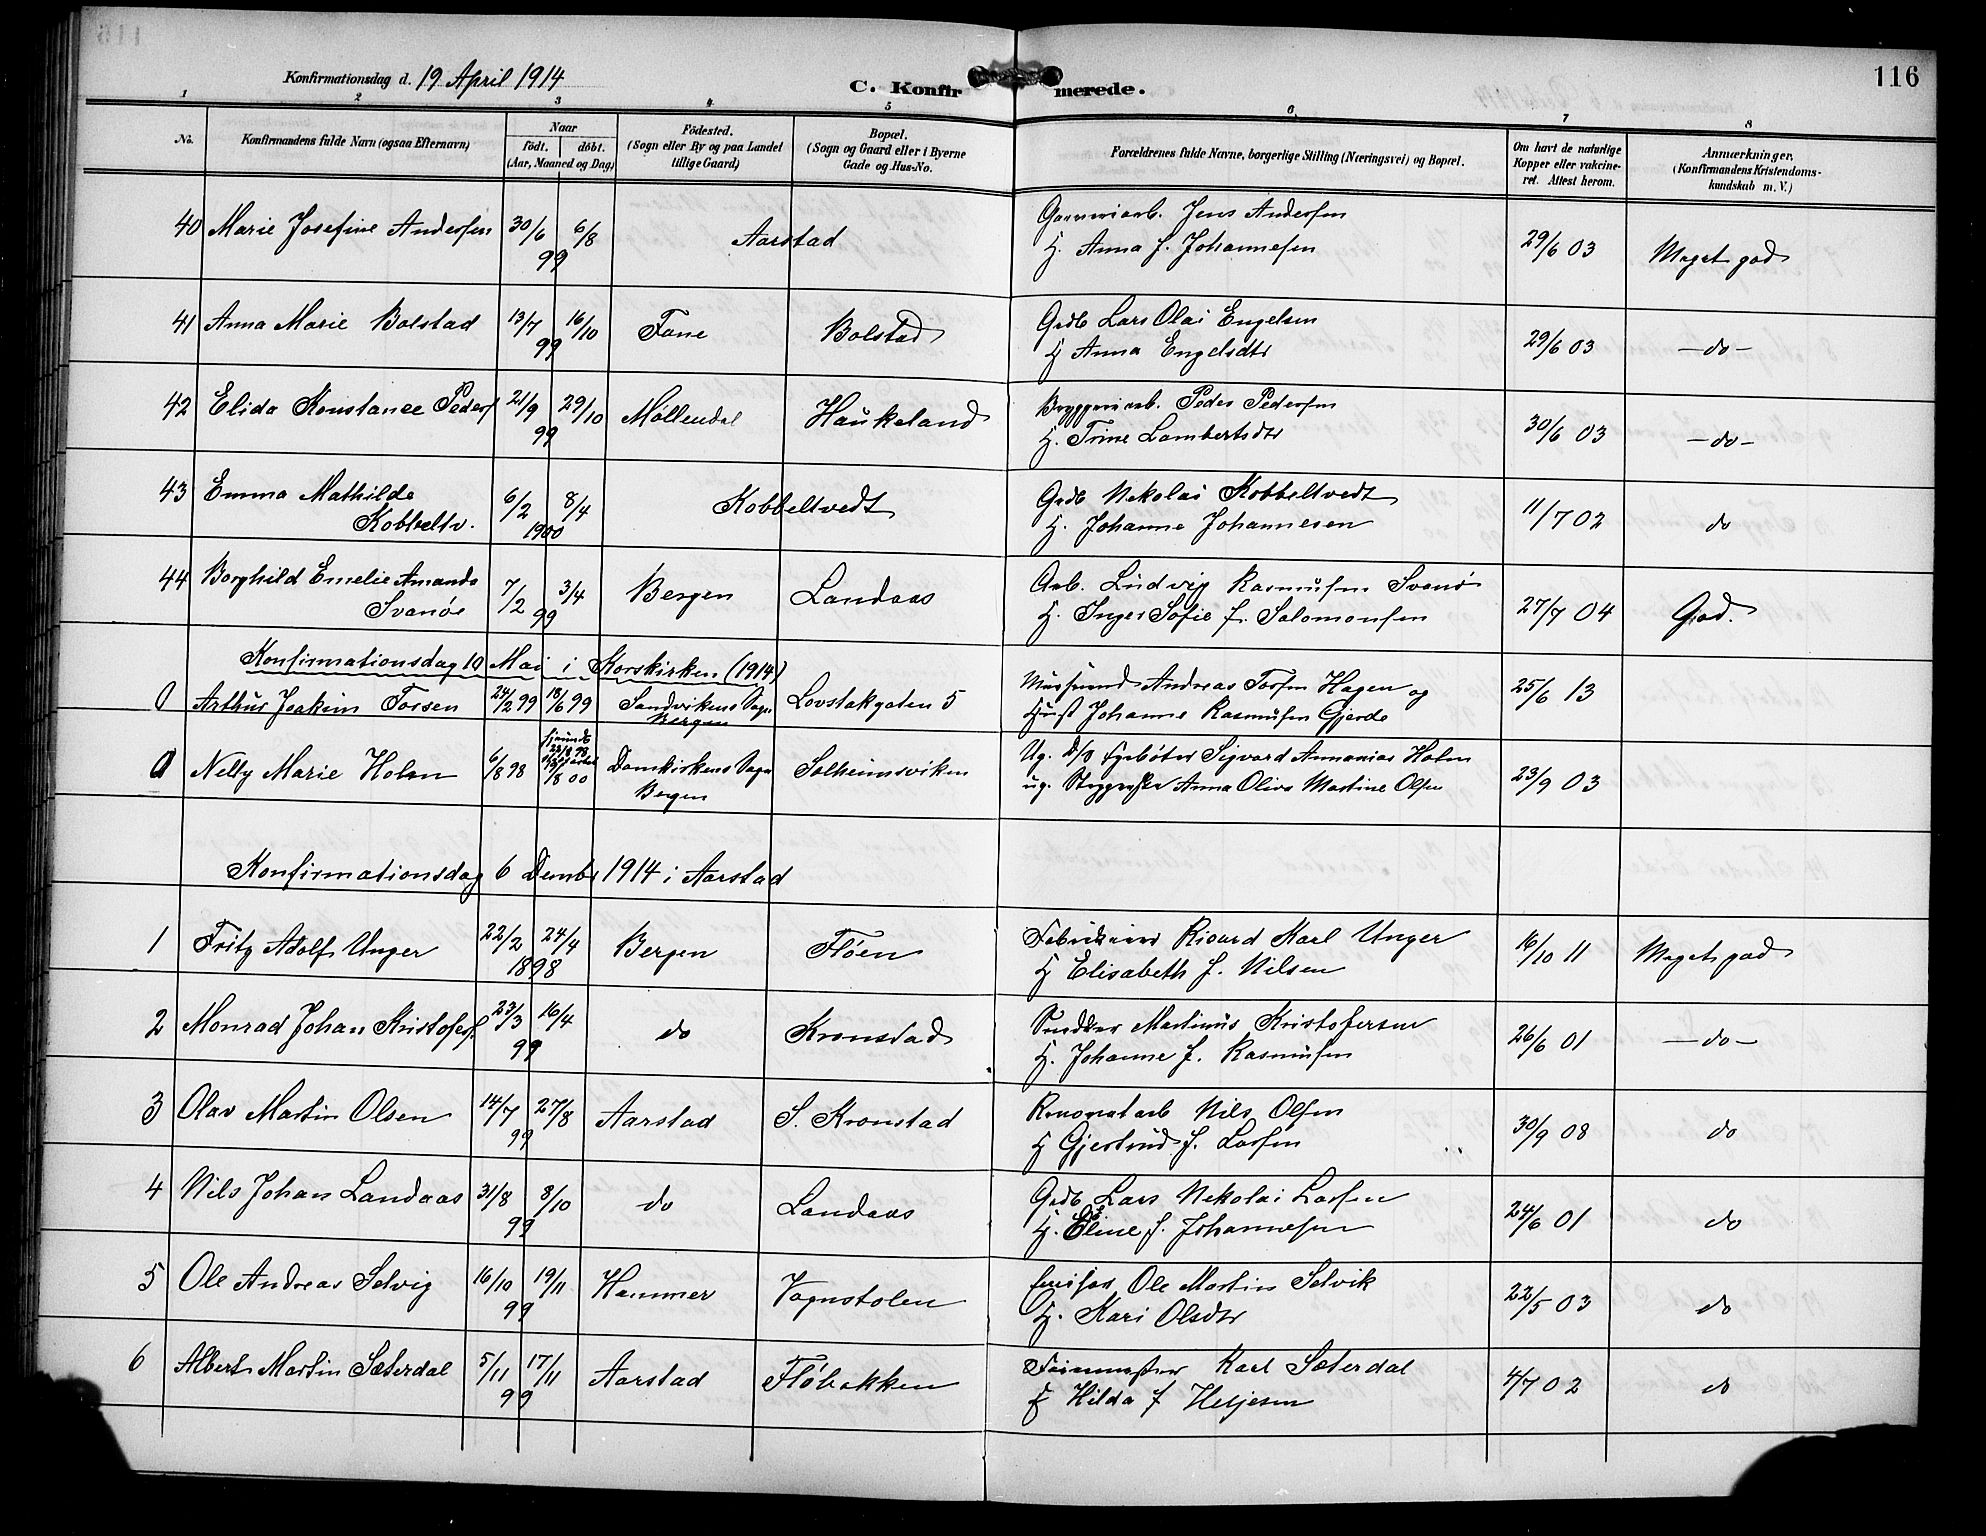 116
Konfirmationsdag d. 19 April 1914
C. Konfirmerede.
1 2 3 4 5 6 7 8
No. Konfirmandens fulde Navn (ogsaa Efternavn) Naar født. døbt. (Aar, Maaned og Dag) Fødested. (Sogn eller By og paa Landet tillige Gaard) Bopæl. (Sogn og Gaard eller i Byerne Gade og Hus-No. Forældrenes fulde Navne, borgerlige Stilling (Næringsvei) og Bopæl. Om havt de naturlige Kopper eller vakcineret. Attest herom. Anmærkninger. (Konfirmandens Kristendomskundskab m. V.)
40 Marie Josefine Andersen 30/6 6/8 99 Aarstad Jens Andersen 29/6 03 Meget god
H. Anna f. Johannesen
41 Anna Marie Bolstad 13/7 16/10 99 Fane Bolstad Grdb Lars Olai Engelsen 29/6 03 -do-
H Anna Engelsdtr
42 Elida Konstance Peders 21/9 29/10 99 Møllendal Haukeland Bryggeriarb. Peder Pedersen 30/6 03 -do-
H. Trine Lambertsdtr
43 Emma Mathilde Kobbeltv. 6/2 8/4 1900 Kobbeltvedt Grdb Nikolai Kobbeltvedt 11/7 02 do
H. Johanne Johannesen
44 Borghild Emelie Amanda Svanøe 7/2 3/4 99 Bergen Landaas Arb. Ludvig Rasmusen Svanø 27/7 04 God.
H. Inger Sofie f. Salomonsen
Konfirmationsdag 10 Mai i Korskirken (1914)
0 Arthur Joakim Tossen 24/2 99 18/6 99 Sandvikens Sogn Bergen Lovstakgaten 5 Andreas Hagen og 25/6 13
Hust Johanne Rasmusen Gjerde
0 Nelly Marie Holm 6/8 98 Domkirkens Sogn Bergen Solheimsviken Ug. D/S Fyrbøter Sigvard Annanias Holm 23/9 03
ug. Anna Oliva Martine Olsen
Konfirmationsdag 6 Dembr 1914 i Aarstad
1 Fritz Adolf Unger 22/2 24/4 1898 Bergen Fløen Rivard Karl Unger 16/10 11 Meget god
H Elisabeth f. Nilsen
2 Monrad Johan Kristofers. 23/3 16/4 99 do Kronstad Snedker Martinus Kristofersen 26/6 01 -do-
H. Johanne f. Rasmusen
3 Olav Martin Olsen 14/7 27/8 99 Aarstad S. Kronstad Renovatarb Nils Olsen 30/9 08 do
H Gjertrud f. Larsen
4 Nils Johan Landaas 31/8 8/10 99 do Landaas Grdb Lars Nikolai Larsen 24/6 01 do
H. Eline f. Johannesen
5 Ole Andreas Selvig 16/10 19/11 99 Hammer Vognstolen Ole Martin Selvik 22/5 03 do
H. Kari Olsdtr
6 Albert Martin Sæterdal 5/11 17/11 99 Aarstad Fløbakken Karl Sæterdal 4/7 02 do
H Hilda f Hesjesen